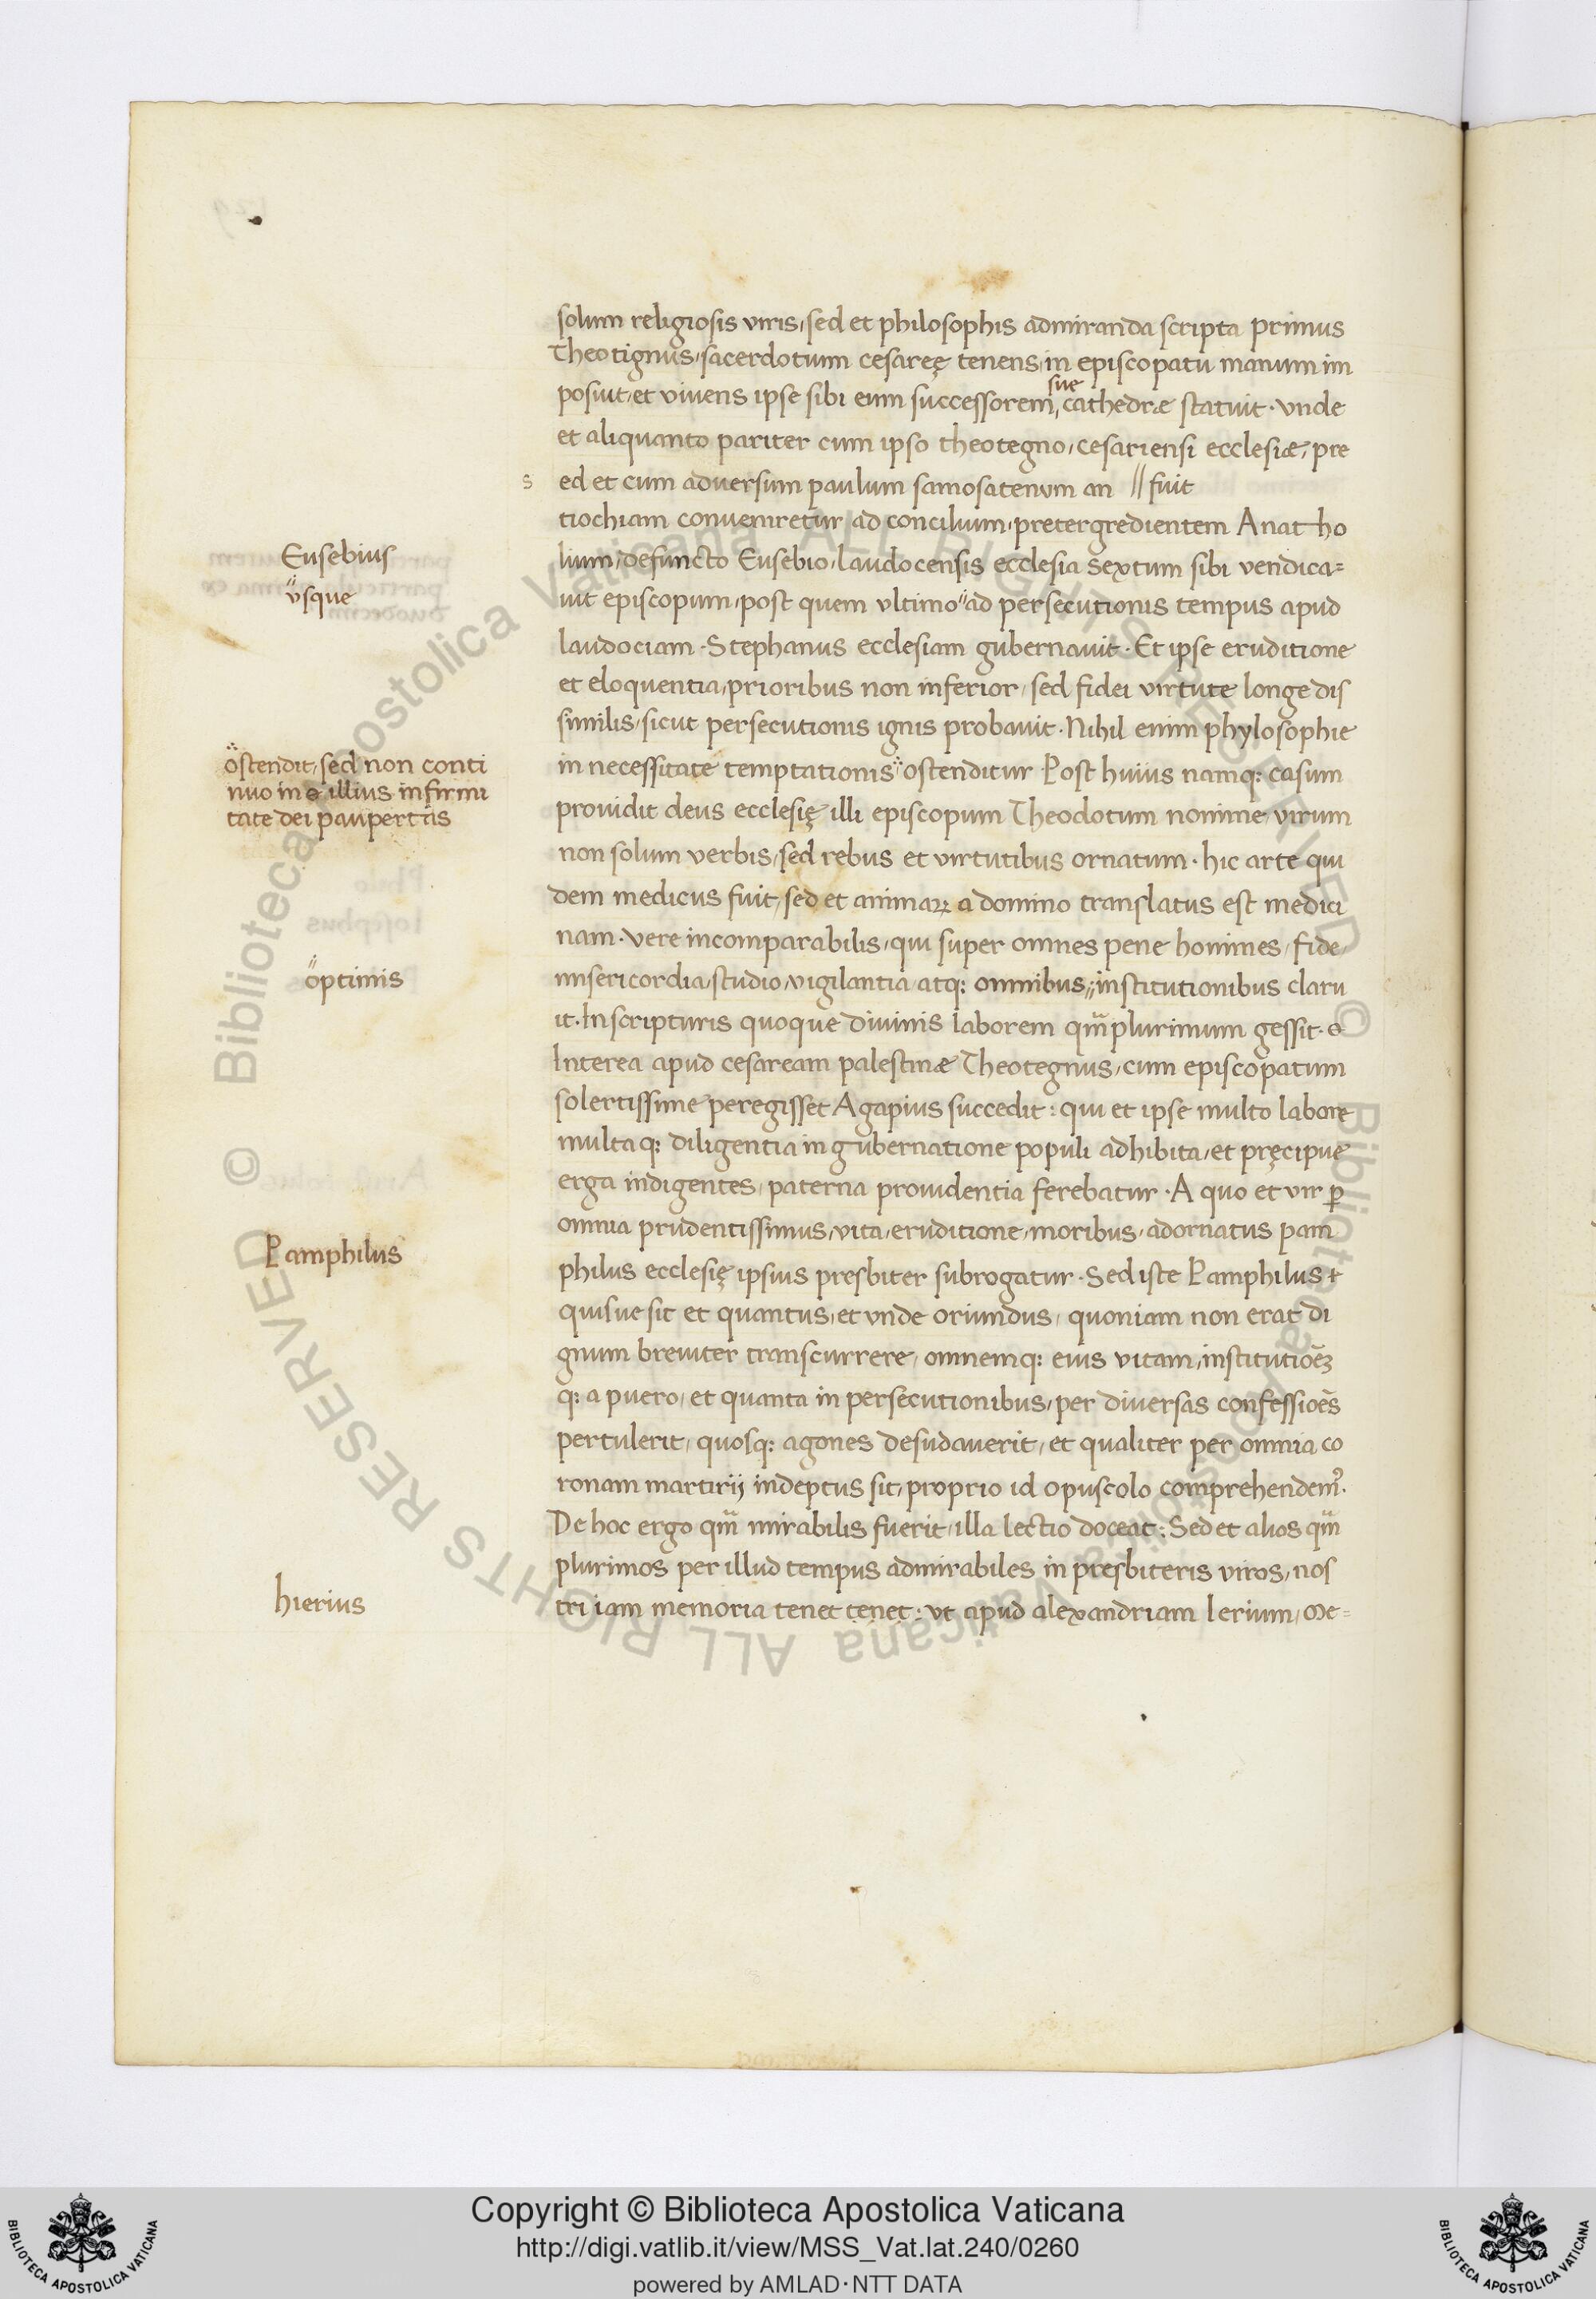 solum religiosis viris, sed et philosophis admiranda scripta primus
Theotignus, sacerdotum cesareę tenens, in episcopatu manum im
posuit, et vivens ipse sibi eum successorem, sue cathedræ statuit. vnde
et aliquanto pariter cum ipso theotegno, cesariensi ecclesiæ, pre
s ed et cum adversum paulum samosatenum an // fuit
tiochiam conveniretur ad concilium, pretergredientem Anatho
Eusebius
lium, defuncto Eusebio, laudocensis ecclesia sextum sibi vendica=
vsque
uit episcopum, post quem vltimo" ad persecutionis tempus apud
laudociam. Stephanus ecclesiam gubernauit. Et ipse eruditione
et eloquentia, prioribus non inferior, sed fidei virtute longe dis
similis, sicut persecutionis ignis probavit. Nihil enim phylosophie
ostendit, sed non conti
nuo in illius infirmi
tate dei paupertas
in necessitate temptationis ostenditur Post huius namq: casum
prouidit deus ecclesię illi episcopum Theodotum nomine virum
non solum verbis, sed rebus et virtutibus ornatum. hic arte qui
dem medicus fuit, sed et animaꝝ a domino translatus est medici
nam. vere incomparabilis, qui super omnes pene homines, fide,
optimis
misericordia, studio, vigilantia atq: omnibus," institutionibus claru
it. In scripturis quoque divinis laborem qm̃ plurimum gessit.
Interea apud cesaream palestinæ Theotegnus, cum episcopatum
solertissime peregisset Agapius succedit: qui et ipse multo labore
multa q: diligentia in gubernatione populi adhibita, et pręcipue
erga indigentes, paterna prouidentia ferebatur. A quo et vir ꝑ
omnia prudentissimus, vita, eruditione, moribus, adornatus pam
Pamphilus
philus ecclesię ipsius presbiter subrogatur. Sed iste Pamphilus
quisue sit et quantus, et vnde oriundus, quoniam non erat di
gnum breuiter transcurrere, omnemq: eius vitam, institutioẽꝫ
q: a puero, et quanta in persecutionibus, per diversas confessioẽs
pertulerit, quosq: agones desudaverit, et qualiter per omnia co
ronam martirij indeptus sit, proprio id opuscolo comprehendemꝰ.
De hoc ergo qm̃ mirabilis fuerit, illa lectio doceat: Sed et alios qm̃
plurimos per illud tempus admirabiles in presbiteris viros, nos
hierius
tri iam memoria tenet tenet: vt apud alexandriam Ierium, me=
Copyright © Biblioteca Apostolica Vaticana
http://digi.vatlib.it/view/MSS_Vat.lat.240/0260
powered by AMLAD·NTT DATA
BIBLIOTECA APOSTOLICA VATICANA
BIBLIOTECA APOSTOLICA VATICANA
© Biblioteca Apostolica Vaticana ALL RIGHTS RESERVED © Biblioteca Apostolica Vaticana ALL RIGHTS RESERVED